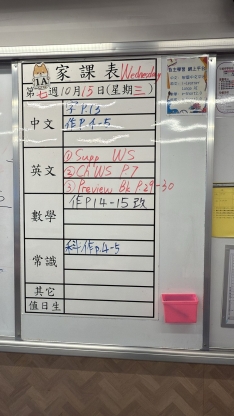 1A 家課表 Wednesday
第七週10月15日(星期三)
中文
字P.13
作P.4-5
英文
① Supp WS
② Ch WS P.7
③ Preview Bk P.29-30
數學
作P14-15改
常識
科作p.4-5
其它
值日生